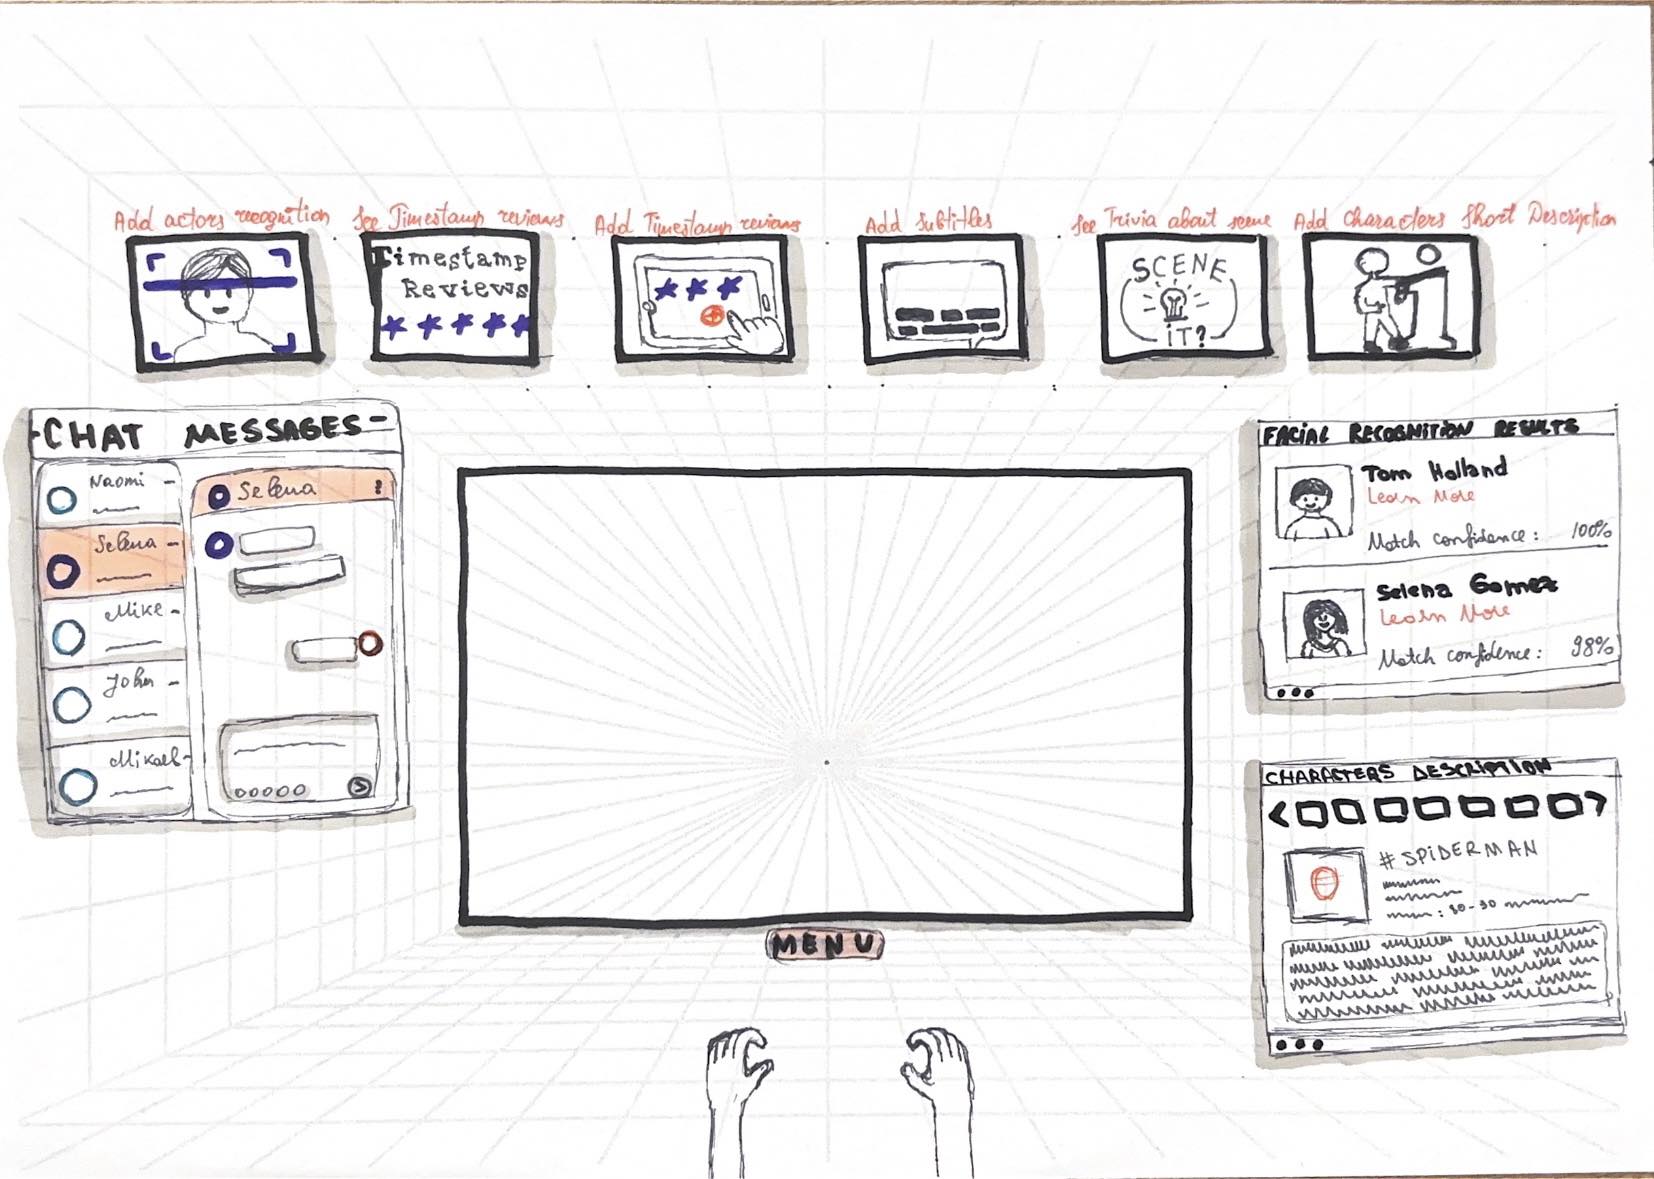 Add actors recognition
See Timestamp reviews
Add Timestamp reviews
Add subtitles
See Trivia about scene
Add characters short Description
Timestamp
Reviews
SCENE
iT?
-CHAT MESSAGES-
Naomi
Selena
Mike
John
Mikael
Selena
MENU
FACIAL RECOGNITION RESULTS
Tom Holland
Learn More
Match confidence: 100%
Selena Gomez
Learn More
Match confidence: 98%
CHARACTERS DESCRIPTION
#SPIDERMAN